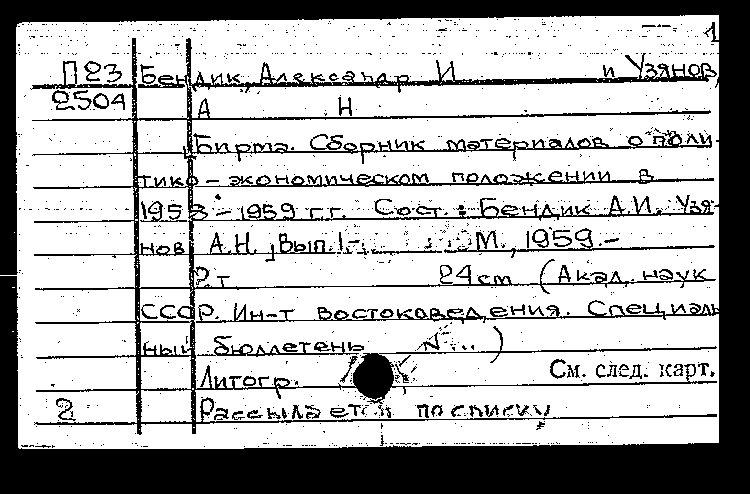 1
П23 Бендик, Александр И и Узянов,
2504 А Н
Бирма. Сборник материалов о поли-
тико-экономическом положении в
1958-1959 гг. Сост.: Бендик А.И., Узя-
нов А.Н. Вып. 1- М., 1959.-
2 т 24 см (Акад. наук
СССР. Ин-т востоковедения. Специаль
ный бюллетень N ... )
Литогр. См. след. карт.
2 Рассылается по списку